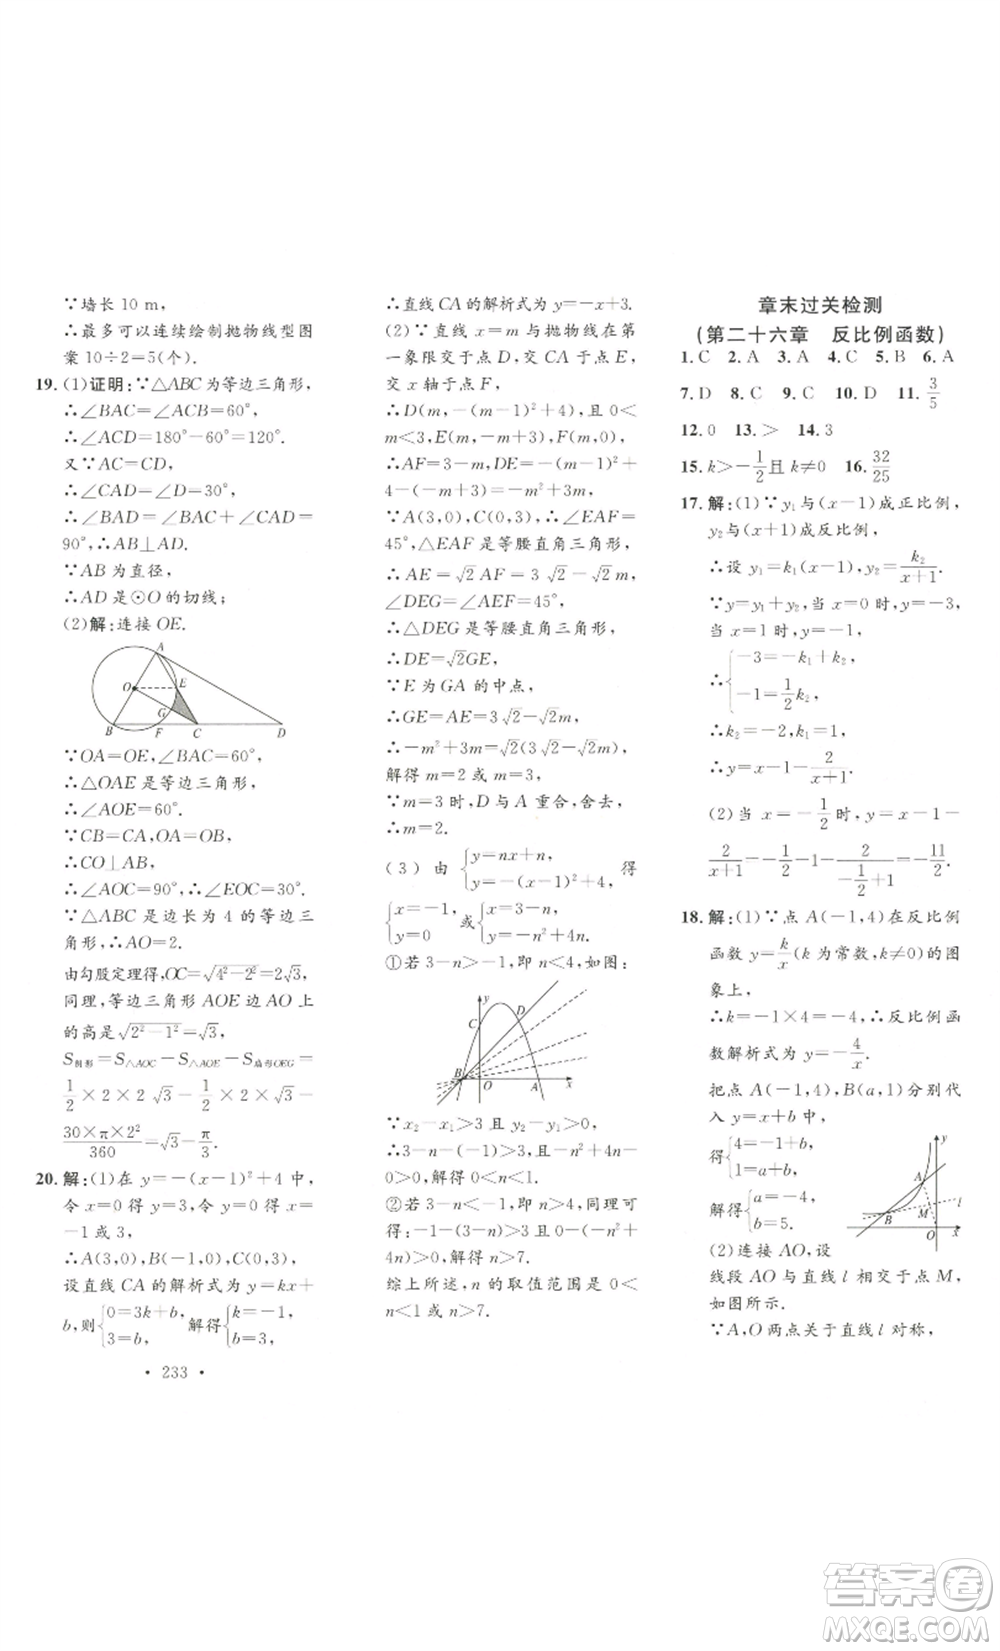 ∵墙长 10 m,
∴最多可以连续绘制抛物线型图
案 10÷2=5(个).
19. (1)证明:∵△ABC 为等边三角形,
∴∠BAC=∠BCA=60°,
∴∠ACD=180°-60°=120°.
又∵AC=CD,
∴∠CAD=∠D=30°,
∴∠BAD=∠BAC+∠CAD=
90°,∴AB⊥AD.
∵AB 为直径,
∴AD 是⊙O 的切线;
(2)解:连接 OE.
A
O E
G
B F C D
∵OA=OE,∠BAC=60°,
∴△OAE 是等边三角形,
∴∠AOE=60°.
∵CB=CA,OA=OB,
∴CO⊥AB,
∴∠AOC=90°,∴∠EOC=30°.
∵△ABC 是边长为 4 的等边三
角形,∴AO=2.
由勾股定理得,OC=√(4²-2²)=2√3,
同理,等边三角形 AOE 边 AO 上
的高是√(2²-1²)=√3,
S阴影=S△AOC-S△AOE-S扇形OEG=
1/2×2×2√3-1/2×2×√3-
(30×π×2²)/360=√3-π/3.
20. 解:(1)在 y=-(x-1)²+4 中,
令 x=0 得 y=3,令 y=0 得 x=
-1 或 3,
∴A(3,0),B(-1,0),C(0,3),
设直线 CA 的解析式为 y=kx+
b,则{0=3k+b, 3=b, 解得{k=-1, b=3,
· 233 ·
∴直线 CA 的解析式为 y=-x+3.
(2)∵直线 x=m 与抛物线在第
一象限交于点 D,交 CA 于点 E,
交 x 轴于点 F,
∴D(m,-(m-1)²+4),且 0<
m<3,E(m,-m+3),F(m,0),
∴AF=3-m,DE=-(m-1)²+
4-(-m+3)=-m²+3m.
∵A(3,0),C(0,3),∴∠EAF=
45°,△EAF 是等腰直角三角形,
∴AE=√2AF=3√2-√2m,
∠DEG=∠AEF=45°,
∴△DEG 是等腰直角三角形,
∴DE=√2GE,
∵E 为 GA 的中点,
∴GE=AE=3√2-√2m,
∴-m²+3m=√2(3√2-√2m),
解得 m=2 或 m=3.
∵m=3 时,D 与 A 重合,舍去,
∴m=2.
(3)由{y=nx+n, y=-(x-1)²+4, 得
{x=-1, y=0 或{x=3-n, y=-n²+4n.
①若 3-n>-1,即 n<4,如图:
y
C D
B O A x
∵x₂-x₁>3 且 y₂-y₁>0,
∴3-n-(-1)>3 且-n²+4n>
0,解得 0<n<1.
②若 3-n<-1,即 n>4,同理可
得:-1-(3-n)>3 且 0-(-n²+
4n)>0,解得 n>7.
综上所述,n 的取值范围是 0<
n<1 或 n>7.
章末过关检测
(第二十六章 反比例函数)
1. C 2. A 3. A 4. C 5. B 6. A
7. D 8. C 9. C 10. C 11. 3/5
12. 0 13. > 14. 3
15. k>-1/2且 k≠0 16. 32/25
17. 解:(1)∵y₁与(x-1)成正比例,
y₂与(x+1)成反比例,
∴设 y₁=k₁(x-1),y₂=k₂/(x+1).
∵y=y₁+y₂,当 x=0 时,y=-3,
当 x=1 时,y=-1,
∴{-3=-k₁+k₂, -1=1/2k₂,
∴k₂=-2,k₁=1,
∴y=x-1-2/(x+1).
(2)当 x=-1/2时,y=x-1-
2/(x+1)=-1/2-1-2/(-1/2+1)=-11/2.
18. 解:(1)∵点 A(-1,4)在反比例
函数 y=k/x(k 为常数,k≠0)的图
象上,
∴k=-1×4=-4,∴反比例函
数解析式为 y=-4/x.
把点 A(-1,4),B(a,1)分别代
入 y=x+b 中,
得{4=-1+b, 1=a+b,
解得{a=-4, b=5.
y
A
B M l
O x
(2)连接 AO,设
线段 AO 与直线 l 交于点 M,
如图所示.
∵A,O 两点关于直线 l 对称,
答案卷
MXQE.COM